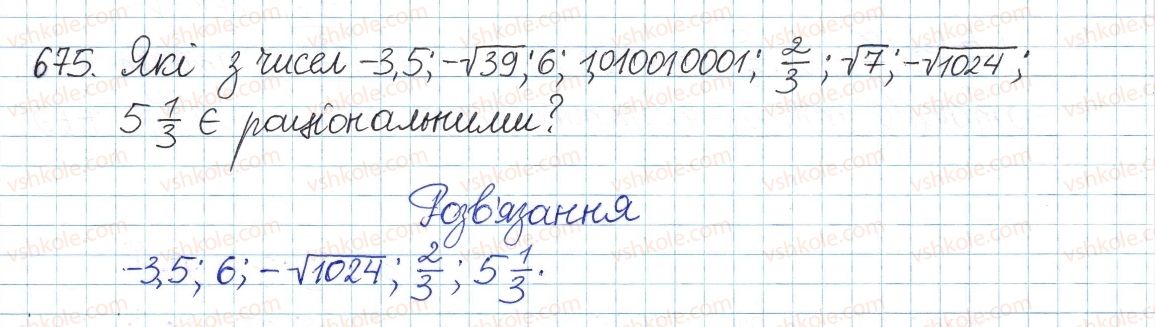 675. Які з чисел -3,5; -√39; 6; 1,010010001; 2/3; √7; -√1024;
5 1/3 є раціональними?
Розв'язання
-3,5; 6; -√1024; 2/3; 5 1/3.